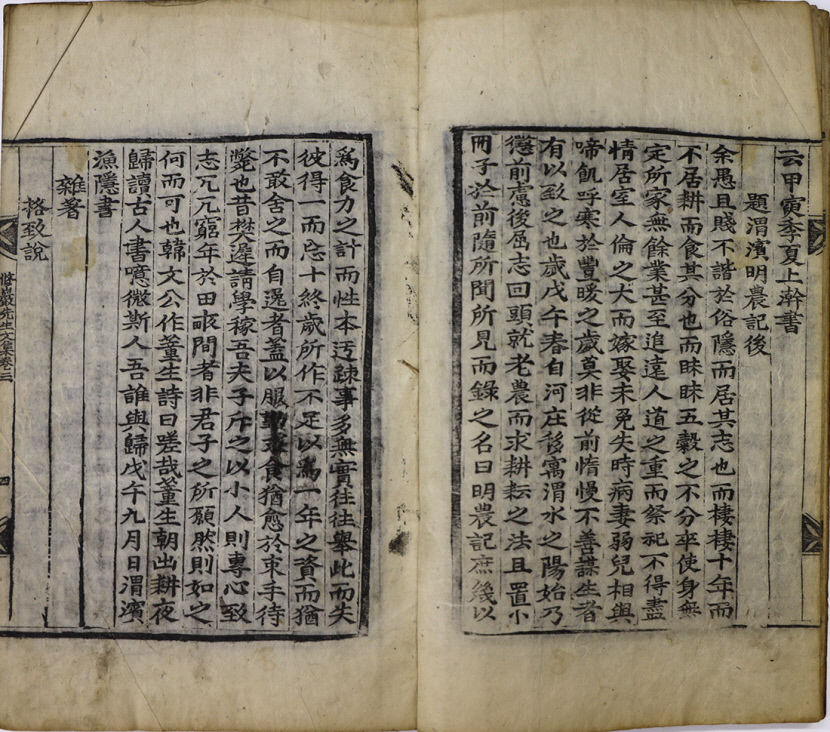 云甲寅季夏上澣書
題渭濱明農記後
余愚且賤不諧於俗隱而居其志也而棲棲十年而
不居耕而食其分也而昧昧五穀之不分卒使身無
定所家無餘業甚至追遠人道之重而祭祀不得盡
情居室人倫之大而嫁娶未免失時病妻弱兒相與
啼飢呼寒於豐暖之歲莫非從前惰慢不善謀生者
有以致之也歲戊午春自河庄移寓渭水之陽始乃
懲前慮後屈志回頭就老農而求耕耘之法且置小
冊子於前隨所聞所見而錄之名曰明農記庶幾以
爲食力之計而性本迃疎事多無實往往舉此而失
彼得一而忘十終歲所作不足以爲一年之資而猶
不敢舍之而自逸者盖以服勤 食猶愈於束手待
斃也昔樊遲請學稼吾夫子斥之以小人則專心致
志兀兀窮年於田畝間者非君子之所願然則如之
何而可也韓文公作董生詩曰嗟哉董生朝出耕夜
歸讀古人書噫微斯人吾誰與歸戊午九月日渭濱
漁隱書
雜著
格致說
修巖先生文集卷二
四